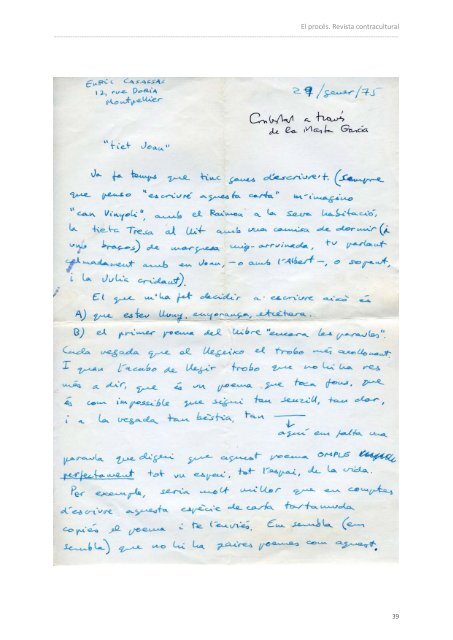 El procés. Revista contracultural
ENRIC CASASSES
12, rue DORIA
Montpellier
29/gener/75
Contestat a través
de la Marta Garcia
"tiet Joan"
Ja fa temps que tinc ganes d'escriure't. (Sempre
que penso "escriuré aquesta carta" m'imagino
"can Vinyoli", amb el Raimon a la seva habitació,
la tieta Tresa al llit amb una camisa de dormir (i
uns braços) de marquesa mig-arruinada, tu parlant
calmadament amb en Joan, -o amb l'Albert-, o sopant,
i la Julia cridant).
El que m'ha fet decidir a escriure això és
A) que estic lluny, enyorança, etcètera.
B) el primer poema del llibre "encara les paraules".
Cada vegada que el llegeixo el trobo més acollonant
I quan l'acabo de llegir trobo que no hi ha res
més a dir, que és un poema que toca fons, que
és com impossible que sigui tan senzill, tan clar,
i a la vegada tan bèstia, tan
aquí em falta una
paraula que digui que aquest poema OMPLE
perfectament tot un espai, tot l'espai, de la vida.
Per exemple, seria molt millor que en comptes
d'escriure aquesta espècie de carta tartamuda
copiés el poema i te l'enviés. Em sembla (em
sembla) que no hi ha gaires poemes com aquest.
39